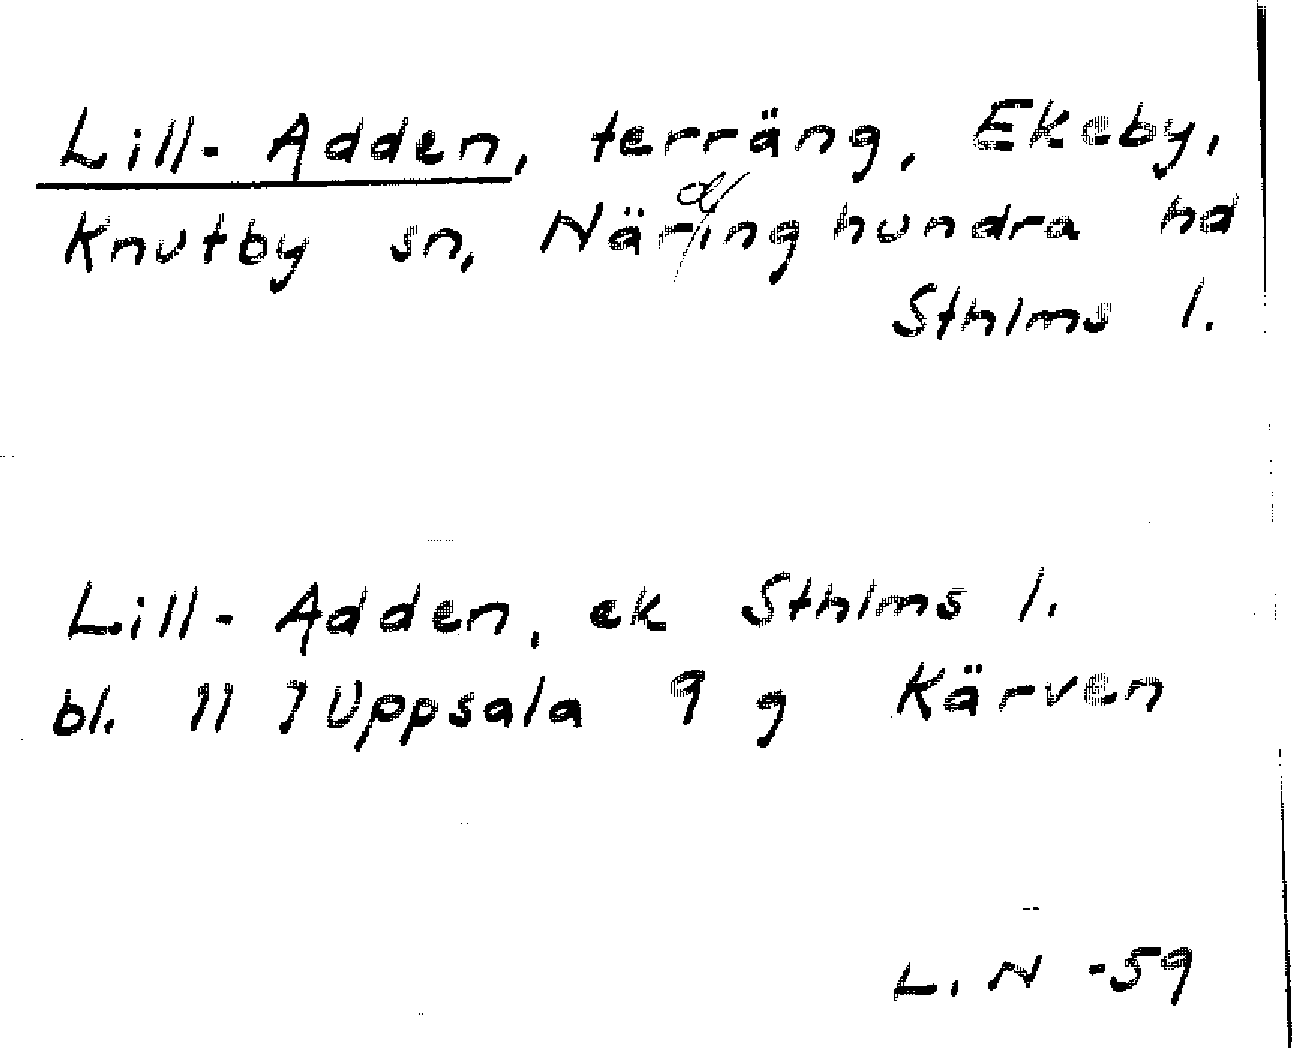 Lill-Adden, terräng, Ekeby,
Knutby sn, Närdinghundra hd
Sthlms l.
Lill-Adden, ek Sthlms l.
bl. 11 7 Uppsala 9 g Kärven
L. N -59